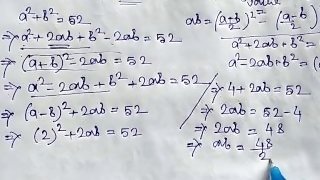 a² + b² = 52
⇒ a² + 2ab + b² - 2ab = 52
⇒ (a+b)² - 2ab = 52
⇒ a² - 2ab + b² + 2ab = 52
⇒ (a-b)² + 2ab = 52
⇒ (2)² + 2ab = 52
ab = (a+b/2)² - (a-b/2)²
a² + 2ab + b²
a² - 2ab + b² = (
⇒ 4 + 2ab = 52
⇒ 2ab = 52 - 4
⇒ 2ab = 48
⇒ ab = 48/2